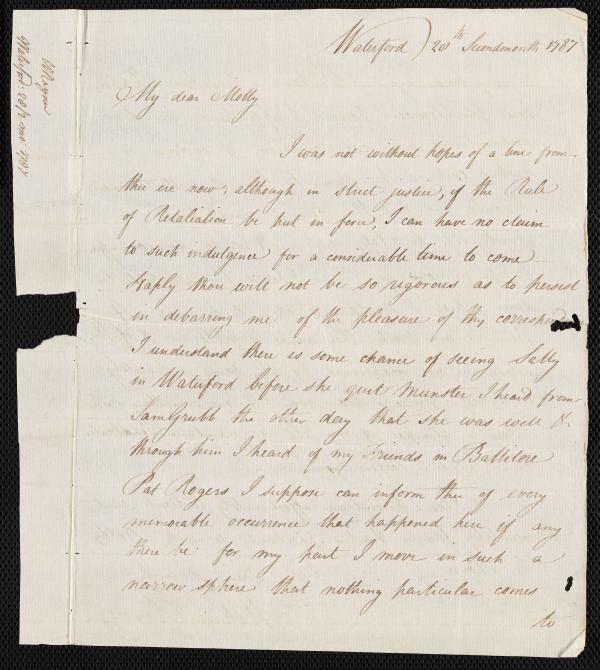 Waterford) 28th Secondmonth 1787
My dear Molly
I was not without hopes of a line from
thee ere now; although in strict justice, if the Rule
of Retaliation be put in force, I can have no claim
to such indulgence for a considerable time to come.
Haply thou wilt not be so rigorous as to persist
in debarring me of the pleasure of thy
I understand there is some chance of seeing Sally
in Waterford before she quit Munster I heard from
Sam Grubb the other day that she was well &
through him I heard of my Friends in Ballitore
Pat Rogers I suppose can inform thee of every
memorable occurrence that happened here if any
there be for my part I move in such a
narrow sphere that nothing particular comes
to
Waterford: 28/2 mo: 1787